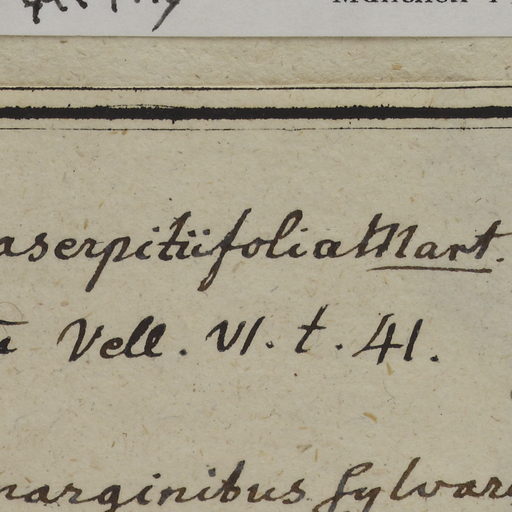 München
aserpitiifolia Mart.
Vell. VI. t. 41.
marginibus sylvar